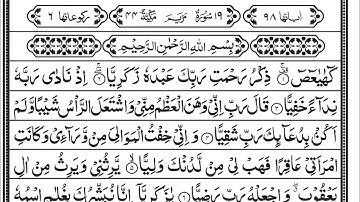 اٰيَاتُهَا ٩٨ ١٩ سُوْرَةُ مَرْيَمَ مَكِّيَّةٌ ٤٤ رُكُوْعَاتُهَا ٦
بِسْمِ اللّٰهِ الرَّحْمٰنِ الرَّحِيْمِ
كٓهٰيٰعٓصٓ ۞ ذِكْرُ رَحْمَتِ رَبِّكَ عَبْدَهٗ زَكَرِيَّا ۞ اِذْ نَادٰى رَبَّهٗ
نِدَآءً خَفِيًّا ۞ قَالَ رَبِّ اِنِّيْ وَهَنَ الْعَظْمُ مِنِّيْ وَاشْتَعَلَ الرَّاْسُ شَيْبًا وَّلَمْ
اَكُنْۢ بِدُعَآئِكَ رَبِّ شَقِيًّا ۞ وَاِنِّيْ خِفْتُ الْمَوَالِيَ مِنْ وَّرَآءِيْ وَكَانَتِ
امْرَاَتِيْ عَاقِرًا فَهَبْ لِيْ مِنْ لَّدُنْكَ وَلِيًّا ۞ يَّرِثُنِيْ وَيَرِثُ مِنْ اٰلِ
يَعْقُوْبَ ۖ وَاجْعَلْهُ رَبِّ رَضِيًّا ۞ يٰزَكَرِيَّآ اِنَّا نُبَشِّرُكَ بِغُلٰمِ اسْمُهٗ